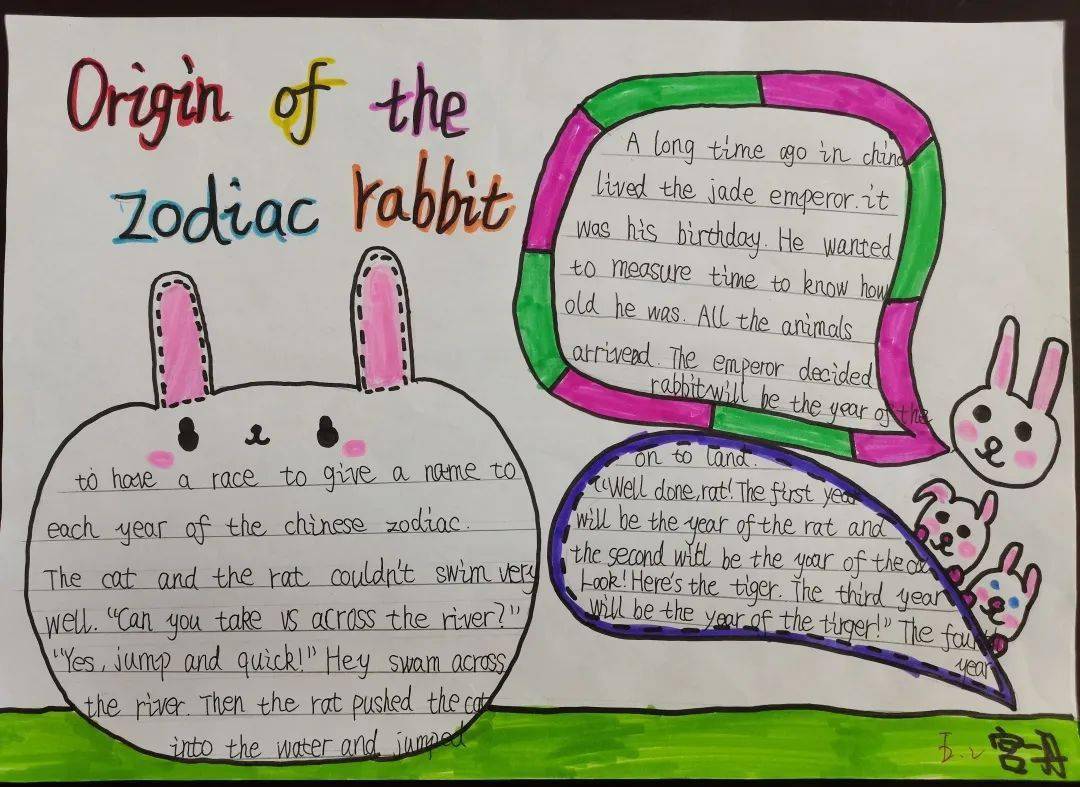 Origin of the
zodiac rabbit
A long time ago in china
lived the jade emperor. it
was his birthday. He wanted
to measure time to know how
old he was. All the animals
arrived. The emperor decided
rabbit will be the year of the
to have a race to give a name to
each year of the chinese zodiac.
The cat and the rat couldn't swim very
well. "Can you take us across the river?"
"Yes, jump and quick!" Hey swam across
the river. Then the rat pushed the cat
into the water and jumped
on to land.
"Well done, rat! The first year
will be the year of the rat and
the second will be the year of the
Look! Here's the tiger. The third year
will be the year of the tirger!" The
year
五.2 宫丹